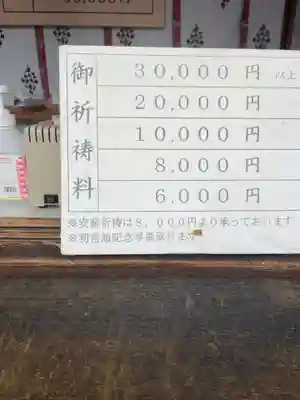 御祈祷料
30,000円 以上
20,000円
10,000円
8,000円
6,000円
※安産祈祷は8,000円より承っております